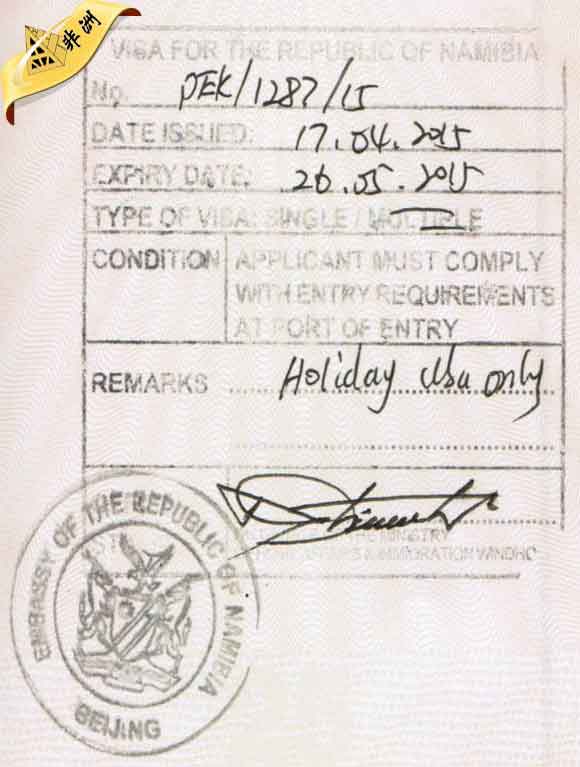 非洲
VISA FOR THE REPUBLIC OF NAMIBIA
No. PEK/1287/15
DATE ISSUED: 17.04.2015
EXPIRY DATE: 26.05.2015
TYPE OF VISA: SINGLE / MULTIPLE
CONDITION APPLICANT MUST COMPLY
WITH ENTRY REQUIREMENTS
AT PORT OF ENTRY
REMARKS Holiday visa only
THE MINISTRY
& IMMIGRATION WINDHO
EMBASSY OF THE REPUBLIC OF NAMIBIA
BEIJING